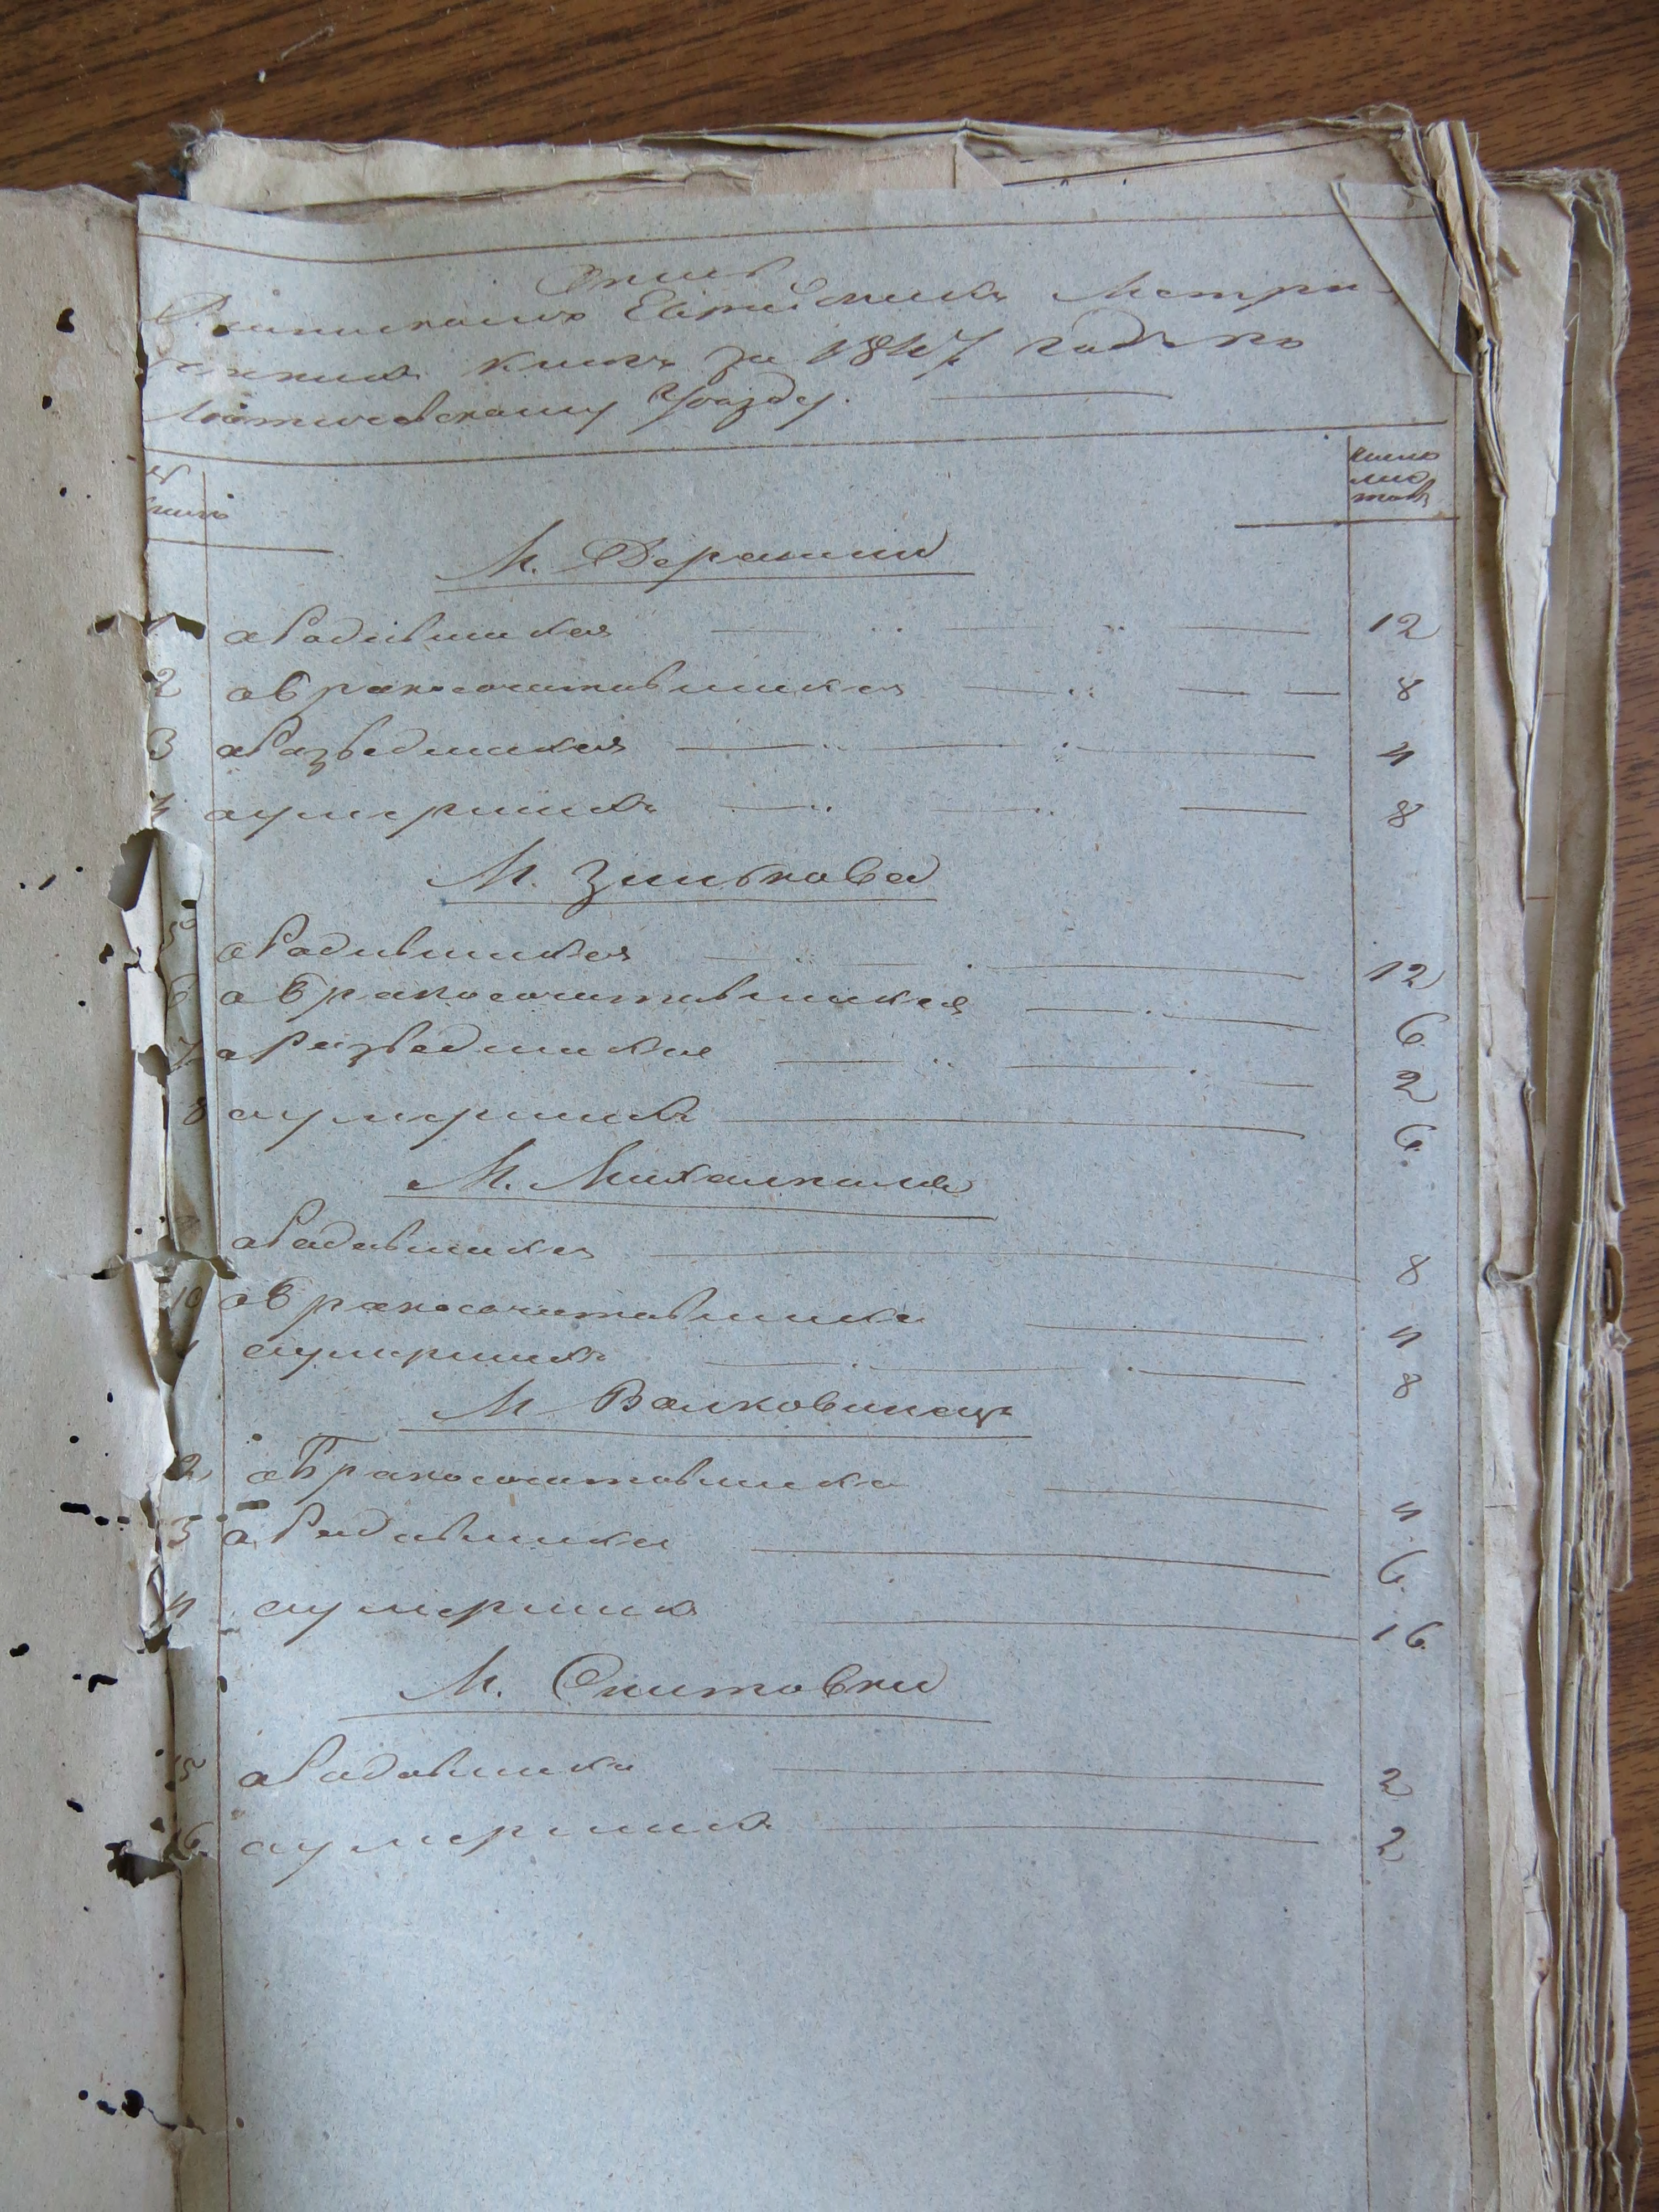 Опись
Раввинскимъ Еврейскихъ Метри-
ческихъ книгъ за 1847 годъ по
Летичевскому Уѣзду.
№ книгъ
число листовъ
М. Деражни
1 о Родившихся 12
2 о Бракосочитавшихся 8
3 о Разведшихся 4
4 о умершихъ 8
М. Зинькова
5 о Родившихся 12
6 о Бракосочитавшихся 6
7 о Разведшихся 2
8 о умершихъ 6
М. Михалполя
о Родившихся 8
10 о Бракосочитавшихся 4
о умершихъ 8
М Волковинецъ
2 о Бракосочитавшихся 4
3 о Родившихся 6
4 о умершихъ 16
М. Снитовки
5 о Родившихся 2
16 о умершихъ 2